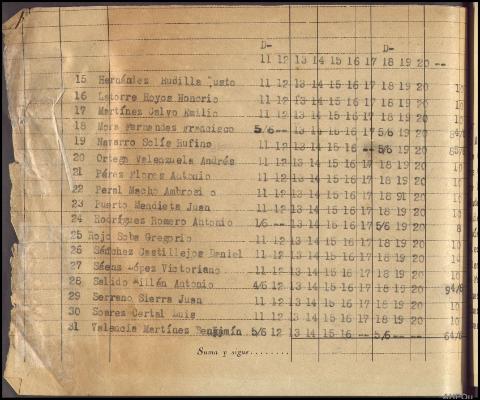 D- D-
11 12 13 14 15 16 17 18 19 20 --
15 Hernández Rudilla Justo 11 12 13 14 15 16 17 18 19 20 10
16 Latorre Hoyos Honorio 11 12 13 14 15 16 17 18 19 20 10
17 Martínez Calvo Emilio 11 12 13 14 15 16 17 18 19 20 10
18 Mora Fernandez Francisco 5/6 -- 13 14 15 16 17 5/6 19 20
19 Navarro Solís Rufino 11 12 13 14 15 16 -- 5/6 19 20
20 Ortega Valenzuela Andrés 11 12 13 14 15 16 17 18 19 20 10
21 Pérez Flores Antonio 11 12 13 14 15 16 17 18 19 20 10
22 Peral Macho Ambrosio 11 12 13 14 15 16 17 18 91 20 10
23 Puerto Mendieta Juan 11 12 13 14 15 16 17 18 19 20 10
24 Rodríguez Romero Antonio 1/6 -- 13 14 15 16 17 5/6 19 20 8
25 Rojo Soba Gregorio 11 12 13 14 15 16 17 18 19 20 10
26 Sánchez Castillejos Daniel 11 12 13 14 15 16 17 18 19 20 10
27 Sáenz López Victoriano 11 12 13 14 15 16 17 18 19 20 10
28 Salido Millán Antonio 4/6 12 13 14 15 16 17 18 19 20 94/6
29 Serrano Sierra Juan 11 12 13 14 15 16 17 18 19 20 10
30 Soarez Certal Luis 11 12 13 14 15 16 17 18 19 20 10
31 Valencia Martínez Benjamín 5/6 12 13 14 15 16 -- 5/6 -- -- 64/6
Suma y sigue........